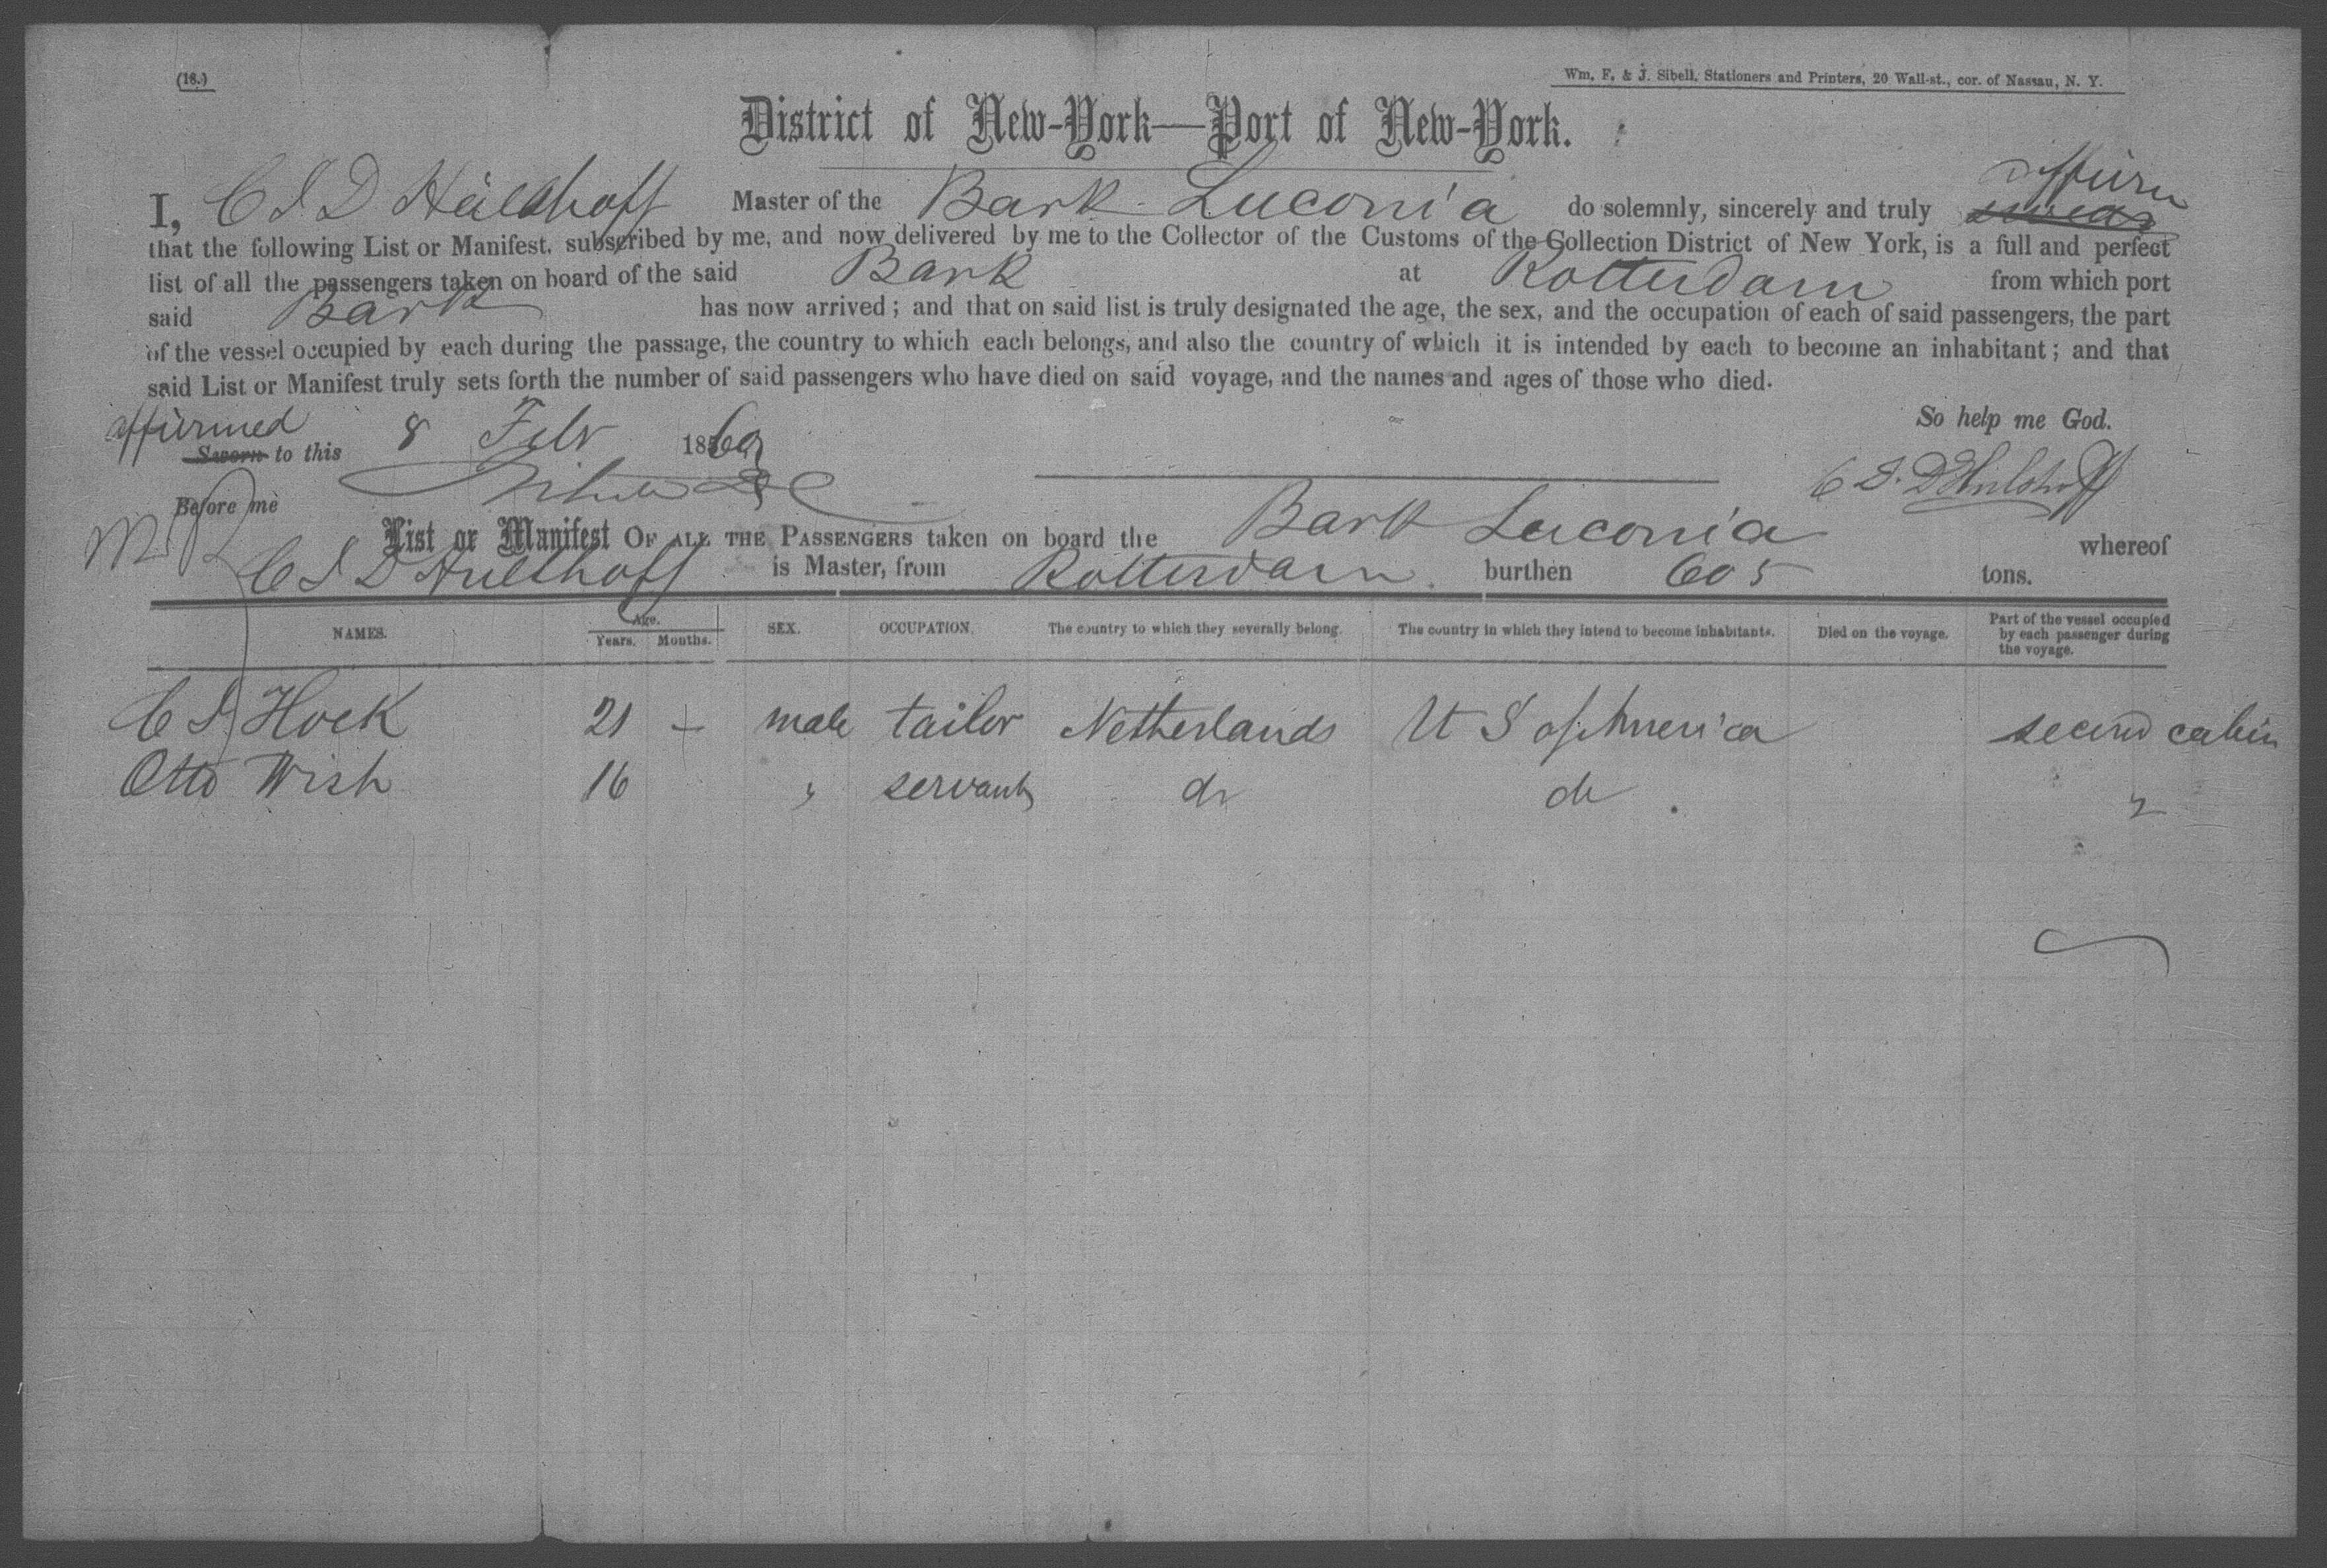 (18.)
Wm. F. & J. Sibell, Stationers and Printers, 20 Wall-st., cor. of Nassau, N. Y.
District of New-York—Port of New-York.
affirm
I, C J D Hülshoff Master of the Bark Luconia do solemnly, sincerely and truly swear
that the following List or Manifest, subscribed by me, and now delivered by me to the Collector of the Customs of the Collection District of New York, is a full and perfect
list of all the passengers taken on board of the said Bark at Rotterdam from which port
said Bark has now arrived; and that on said list is truly designated the age, the sex, and the occupation of each of said passengers, the part
of the vessel occupied by each during the passage, the country to which each belongs, and also the country of which it is intended by each to become an inhabitant; and that
said List or Manifest truly sets forth the number of said passengers who have died on said voyage, and the names and ages of those who died.
So help me God.
affirmed
Sworn to this 8 Febr 1860
C J. D Hulshoff
Before me
List or Manifest OF ALL THE PASSENGERS taken on board the Bark Luconia whereof
C J D Hulshoff is Master, from Rotterdam. burthen 605 tons.
NAMES. Age. Years. Months. SEX. OCCUPATION. The country to which they severally belong. The country in which they intend to become inhabitants. Died on the voyage. Part of the vessel occupied by each passenger during the voyage.
C J Hock 21 - male tailor Netherlands U S of America second cabin
Otto Wish 16 " servant do do "